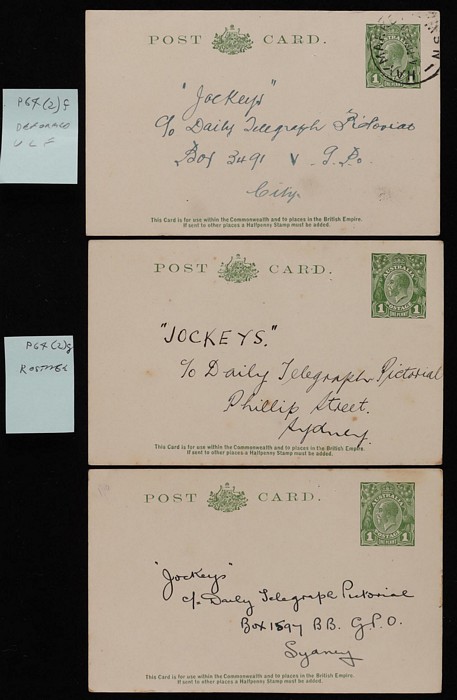 POST CARD.
AUSTRALIA
1
HAYMARKET
N.S.W.
P64(2)f
DEFORMED
ULF
"Jockeys"
c/o Daily Telegraph Pictorial
Box 3491 V G.P.o.
City.
This Card is for use within the Commonwealth and to places in the British Empire.
If sent to other places a Halfpenny Stamp must be added.
POST CARD.
AUSTRALIA
POSTAGE
1 1
ONE PENNY
P64(2)g
"JOCKEYS."
c/o Daily Telegraph Pictorial
Phillip Street.
Sydney.
This Card is for use within the Commonwealth and to places in the British Empire.
If sent to other places a Halfpenny Stamp must be added.
POST CARD.
AUSTRALIA
POSTAGE
1 1
ONE PENNY
"Jockeys"
c/o Daily Telegraph Pictorial
Box 1597 BB. G.P.O.
Sydney
This Card is for use within the Commonwealth and to places in the British Empire.
If sent to other places a Halfpenny Stamp must be added.